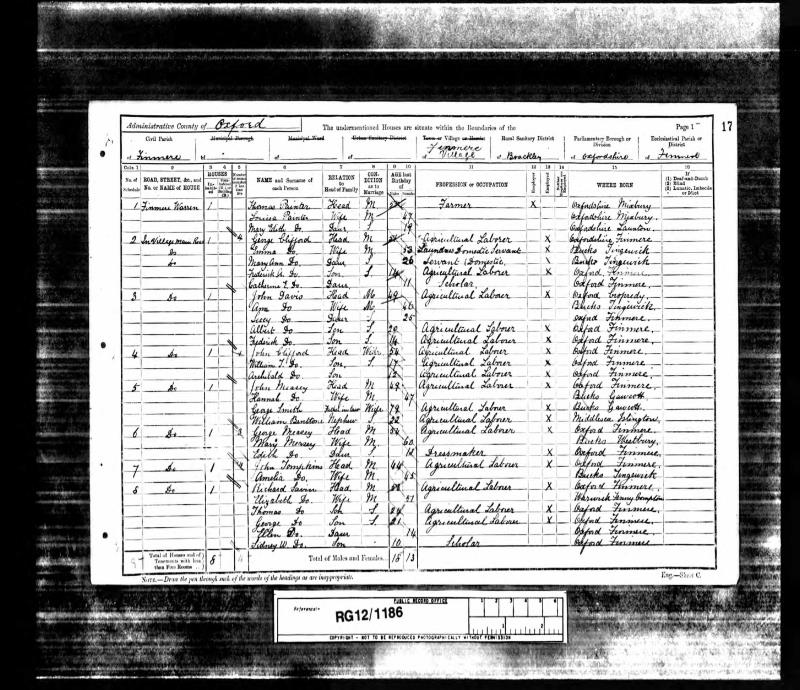 Administrative County of Oxford The undermentioned Houses are situate within the Boundaries of the Page 1 17
Civil Parish Municipal Borough Municipal Ward Urban Sanitary District Town or Village or Hamlet Rural Sanitary District Parliamentary Borough or Division Ecclesiastical Parish or District
of Finmere of of of Finmere Village of Brackley of Oxfordshire of Finmere
No. of Schedule ROAD, STREET, &c., and No. or NAME of HOUSE HOUSES NAME and Surname of each Person RELATION to Head of Family CONDITION as to Marriage AGE last Birthday of PROFESSION or OCCUPATION Employer Employed WHERE BORN If (1) Deaf-and-Dumb (2) Blind (3) Lunatic, Imbecile or Idiot
1 Finmere Warren 1 Thomas Painter Head M Farmer X Oxfordshire Mixbury
Louisa Painter Wife M 47 Oxfordshire Mixbury
Mary Do. Daur S 19 Oxfordshire
2 In Village Main Road 1 4 George Clifford Head M Agricultural Laborer X Oxfordshire Finmere
Do Emma Do. Wife M 53 Laundress Domestic Servant X Bucks Tingewick
Do Mary Ann Do. Daur S 26 Servant (Domestic) X Bucks Tingewick
Frederick A. Do. Son S Agricultural Laborer X Oxford Finmere
Catherine Do. Daur 11 Scholar Oxford Finmere
3 Do 1 John Davis Head M 49 Agricultural Labour X Oxford Cropredy
Ann Do Wife M Bucks Tingewick
Do. 25 Oxford Finmere
Albert Do Son S 20 Agricultural Labour X Oxford Finmere
Frederick Do. Son S 16 Agricultural Labour X Oxford Finmere
4 Do 1 John Clifford Head Widr 54 Agricultural Labour X Oxford Finmere
William Do. Son S 17 Agricultural Labour X Oxford Finmere
Archibald Do Son Agricultural Labour X Oxford Finmere
5 Do 1 John Measey Head M 48 Agricultural Labour X Oxford Finmere
Hannah Do Wife M 47 Bucks Gawcott
George Smith Father in law 79 Agricultural Labour X Bucks Gawcott
William Nephew S 22 Agricultural Labour X Middlesex Islington
6 Do 1 3 George Measey Head M Agricultural Labour X Oxford Finmere
Mary Do. Wife M 60 Bucks Westbury
Edith Do Daur S Dressmaker X Oxford Finmere
7 Do 1 John Tompkins Head M 44 Agricultural Labour X Oxford Finmere
Amelia Do. Wife M 45 Bucks Tingewick
8 Do 1 Richard Head M Agricultural Labour X Oxford Finmere
Elizabeth Do. Wife M 51 Warwick Fenny Compton
Thomas Do Son S 24 Agricultural Labour X Oxford Finmere
George Do Son S 21 Agricultural Labour X Oxford Finmere
Ellen Do. Daur 14 Oxford Finmere
Sidney W. Do. Son 10 Scholar Oxford Finmere
Total of Houses and of Tenements with less than Five Rooms 8 Total of Males and Females 18 13
NOTE.—Draw the pen through such of the words of the headings as are inappropriate. Eng.—Sheet C.
PUBLIC RECORD OFFICE
Reference:- RG12/1186
COPYRIGHT - NOT TO BE REPRODUCED PHOTOGRAPHICALLY WITHOUT PERMISSION